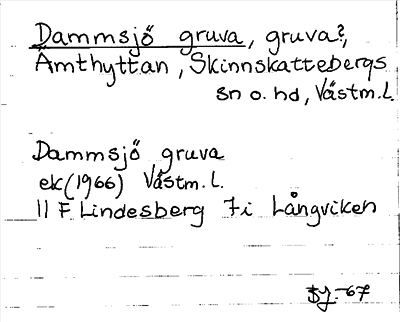 Dammsjö gruva, gruva?,
Åmthyttan, Skinnskattebergs
sn o. hd, Västm. L.
Dammsjö gruva
ek (1966) Västm. L.
11 F Lindesberg 7i Långviken
SJ-67